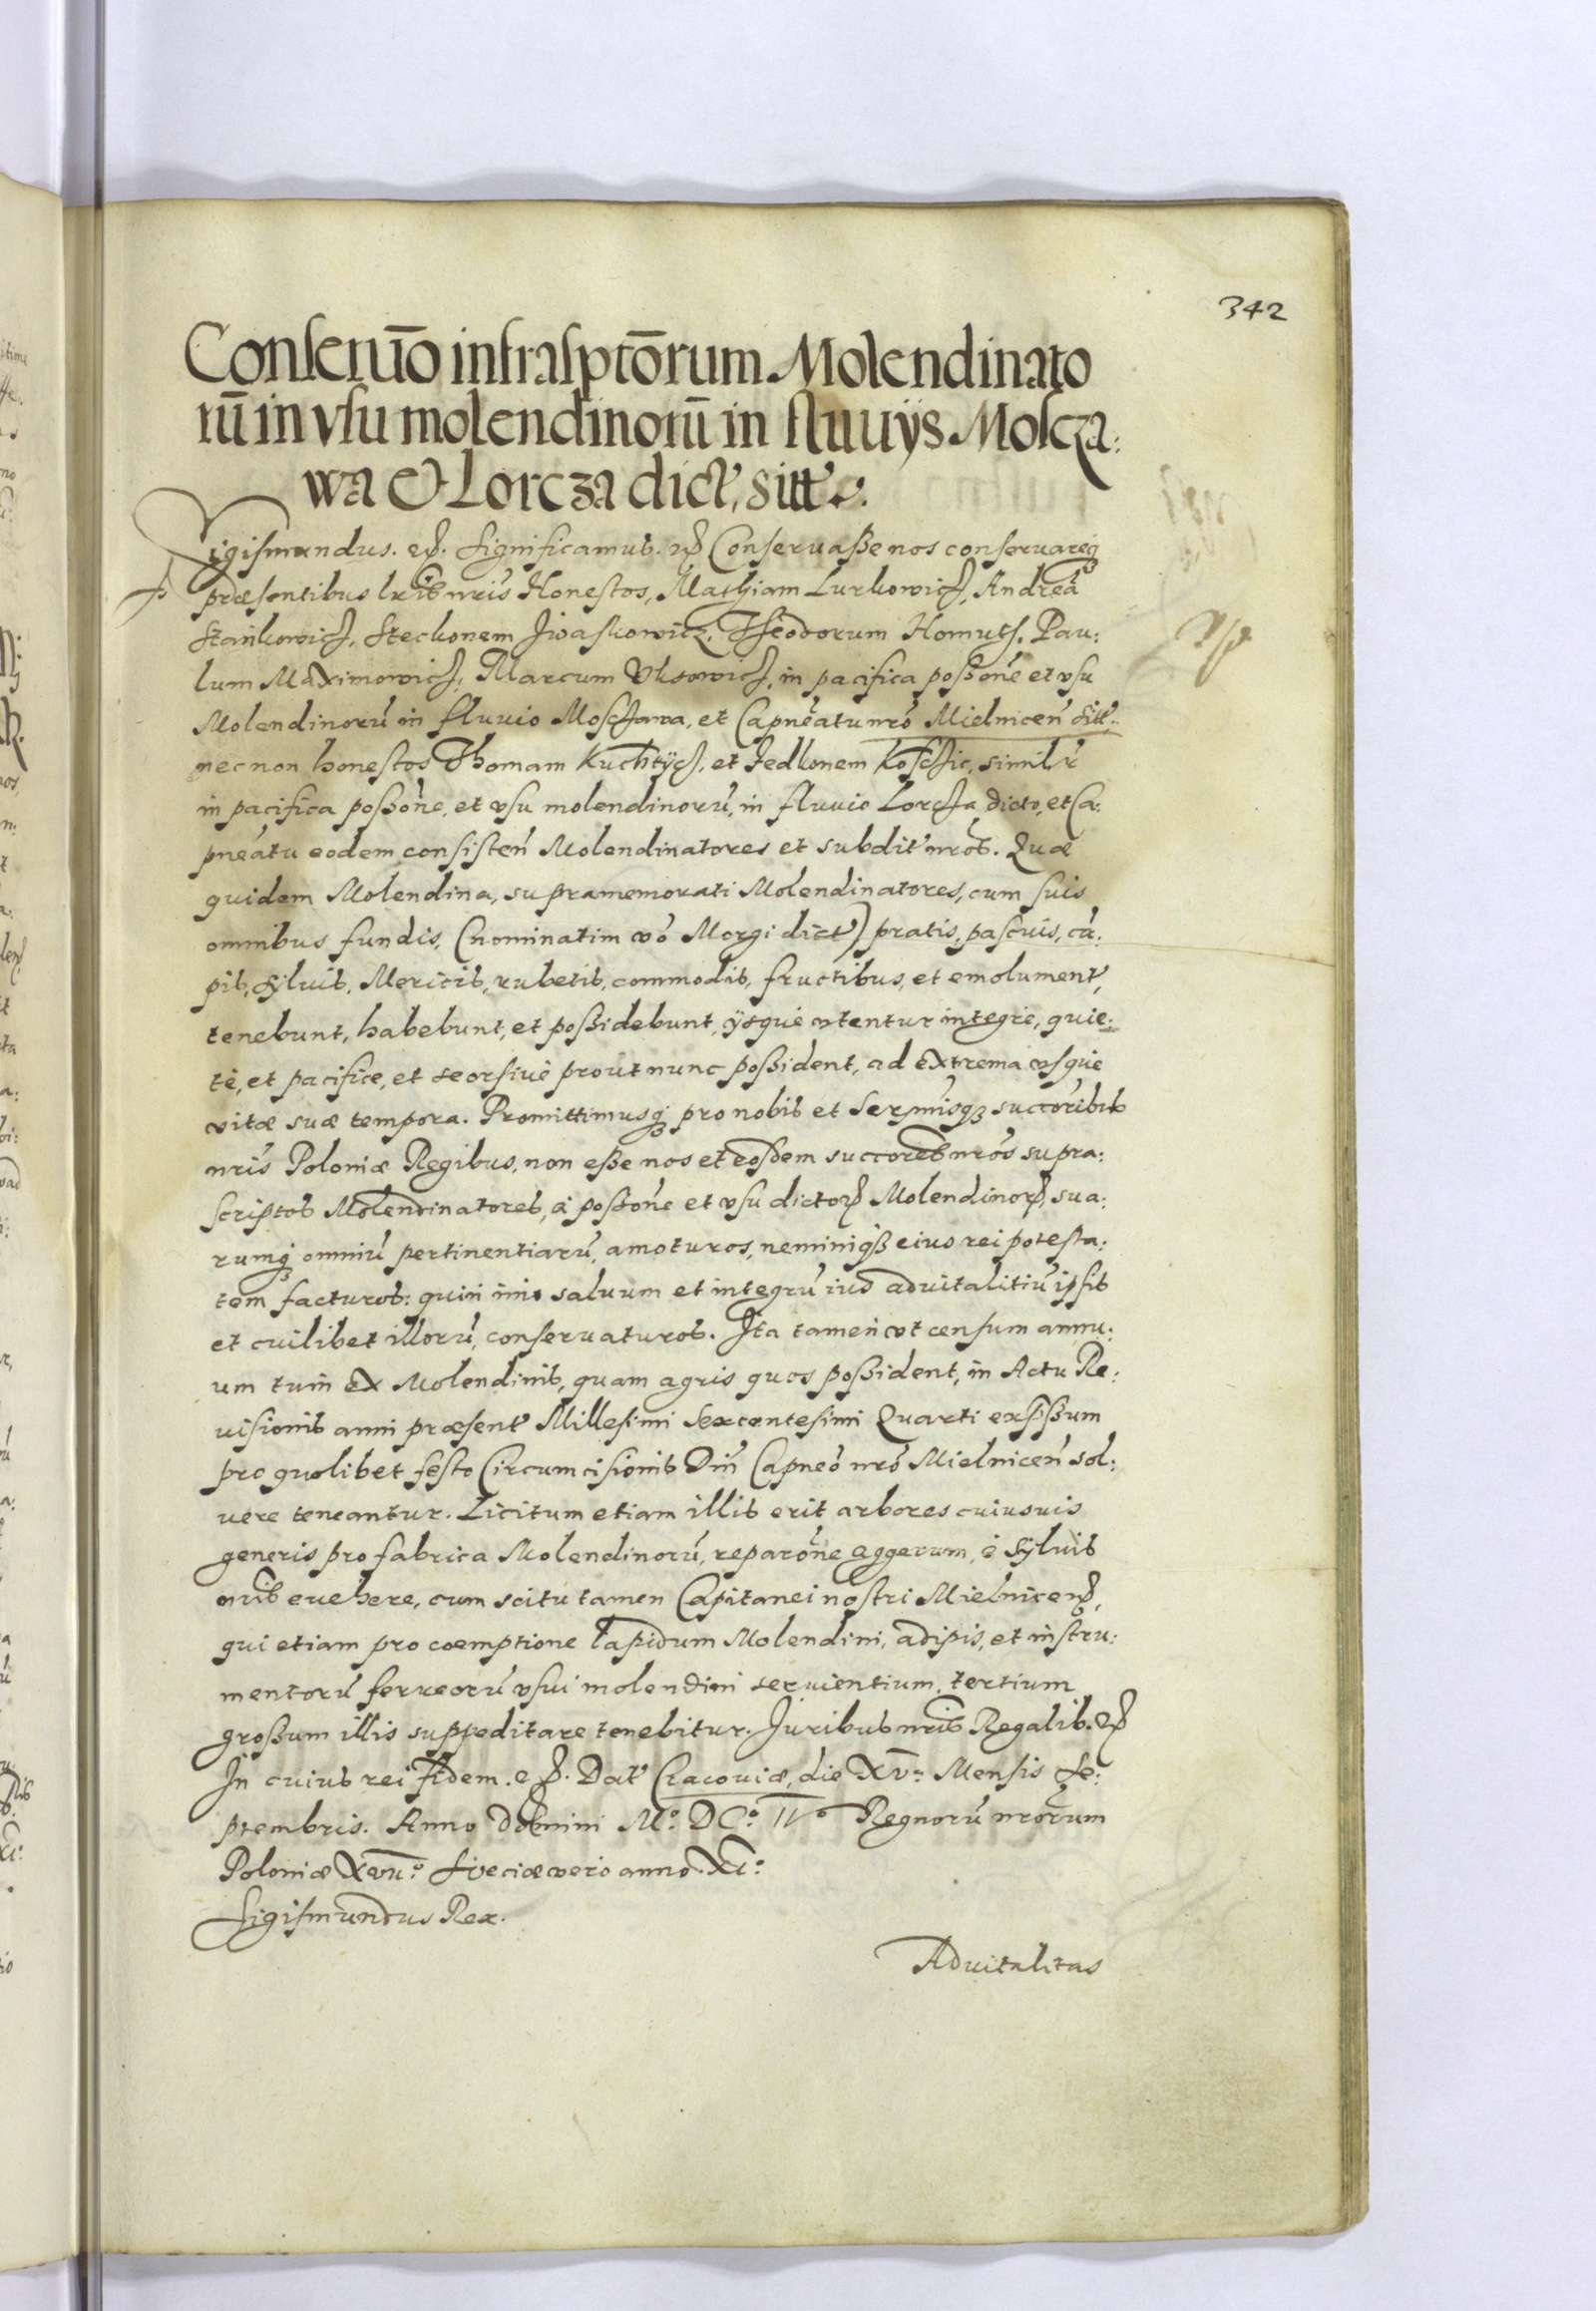 342
Conseruāo infrasptōrum Molendinato
rū in vsu molendinorū in fluuijs Moscza:
wa et Lorcza dict, sitt.
Sigismundus. etc. Significamus. etc Conseruasse nos conseruareq
præsentibus lris nris Honestos, Mathiam Lurkowicz, Andreā
Stankowicz, Steckonem Jwaskowicz, Theodorum Homutz, Pau:
lum Maximowicz, Marcum, in pacifica possone et vsu
Molendinorū in fluuio Mosczawa, et Capneatu nro Mielnicen sitt:
necnon honestos Thomam Kuchtycz, et Jedkonem, similr
in pacifica possone, et vsu molendinorū, in fluuio Lorcza dicto, et Ca:
pneatu eodem consisten Molendinatores et subdit nros. Quæ
quidem Molendina, supramemorati Molendinatores, cum suis
omnibus fundis, (nominatim vō Morgi dict) pratis, pascuis, cā:
pis, syluis, Mericis, rubetis, commodis, fructibus, et emolument,
tenebunt, habebunt, et possidebunt, ijsque vtentur integrè, quie:
tè, et pacifice, et seorsiuè prout nunc possident, ad extrema vsque
vitæ suæ tempora. Promittimusq pro nobis et Sermisq succoribus
nris Poloniæ Regibus, non esse nos et eosdem succores nros supra:
scriptos Molendinatores, à possone et vsu dictor Molendinor, sua:
rumq omniū pertinentiarū, amoturos, neminiq eius rei potesta:
tem facturos: quin imo saluum et integrū ius aduitalitiū ipsis
et cuilibet illorū, conseruaturos. Ita tamen vt censum annu:
um tum ex Molendinis, quam agris quos possident, in Actu Re:
uisionis anni præsent Millesimi Sexcentesimi Quarti expssum
pro quolibet festo Circumcisionis Dni Capneo nro Mielnicen sol:
uere teneantur. Licitum etiam illis erit arbores cuiusuis
generis pro fabrica Molendinorū, reparone aggerum, è syluis
nris euehere, cum scitu tamen Capitanei nostri Mielnicen,
qui etiam pro coemptione lapidum Molendini, adipis, et instru:
mentorū ferreorū vsui molendini seruientium, tertium
grossum illis suppeditare tenebitur. Juribus nris Regalib. etc
In cuius rei fidem. etc. Dat Cracouiæ, die XV. Mensis Se:
ptembris. Anno Domini Mo. DCo. IVo Regnorū nrorum
Poloniæ XVII.o Sueciæ vero anno XI.o
Sigismundus Rex.
Aduitalitas